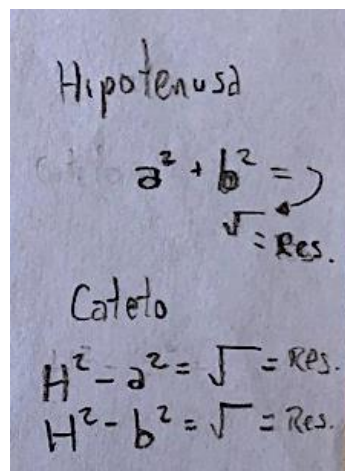 Hipotenusa
a² + b² =
√ = Res.
Cateto
H² - a² = √ = Res.
H² - b² = √ = Res.